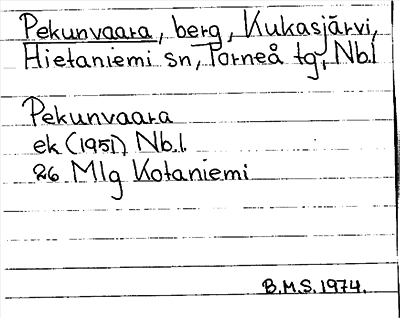 Pekunvaara, berg, Kukasjärvi,
Hietaniemi sn, Torneå tg, Nb.l
Pekunvaara
ek (1951) Nb.l.
26 Mlg Kotaniemi
B.M.S. 1974.